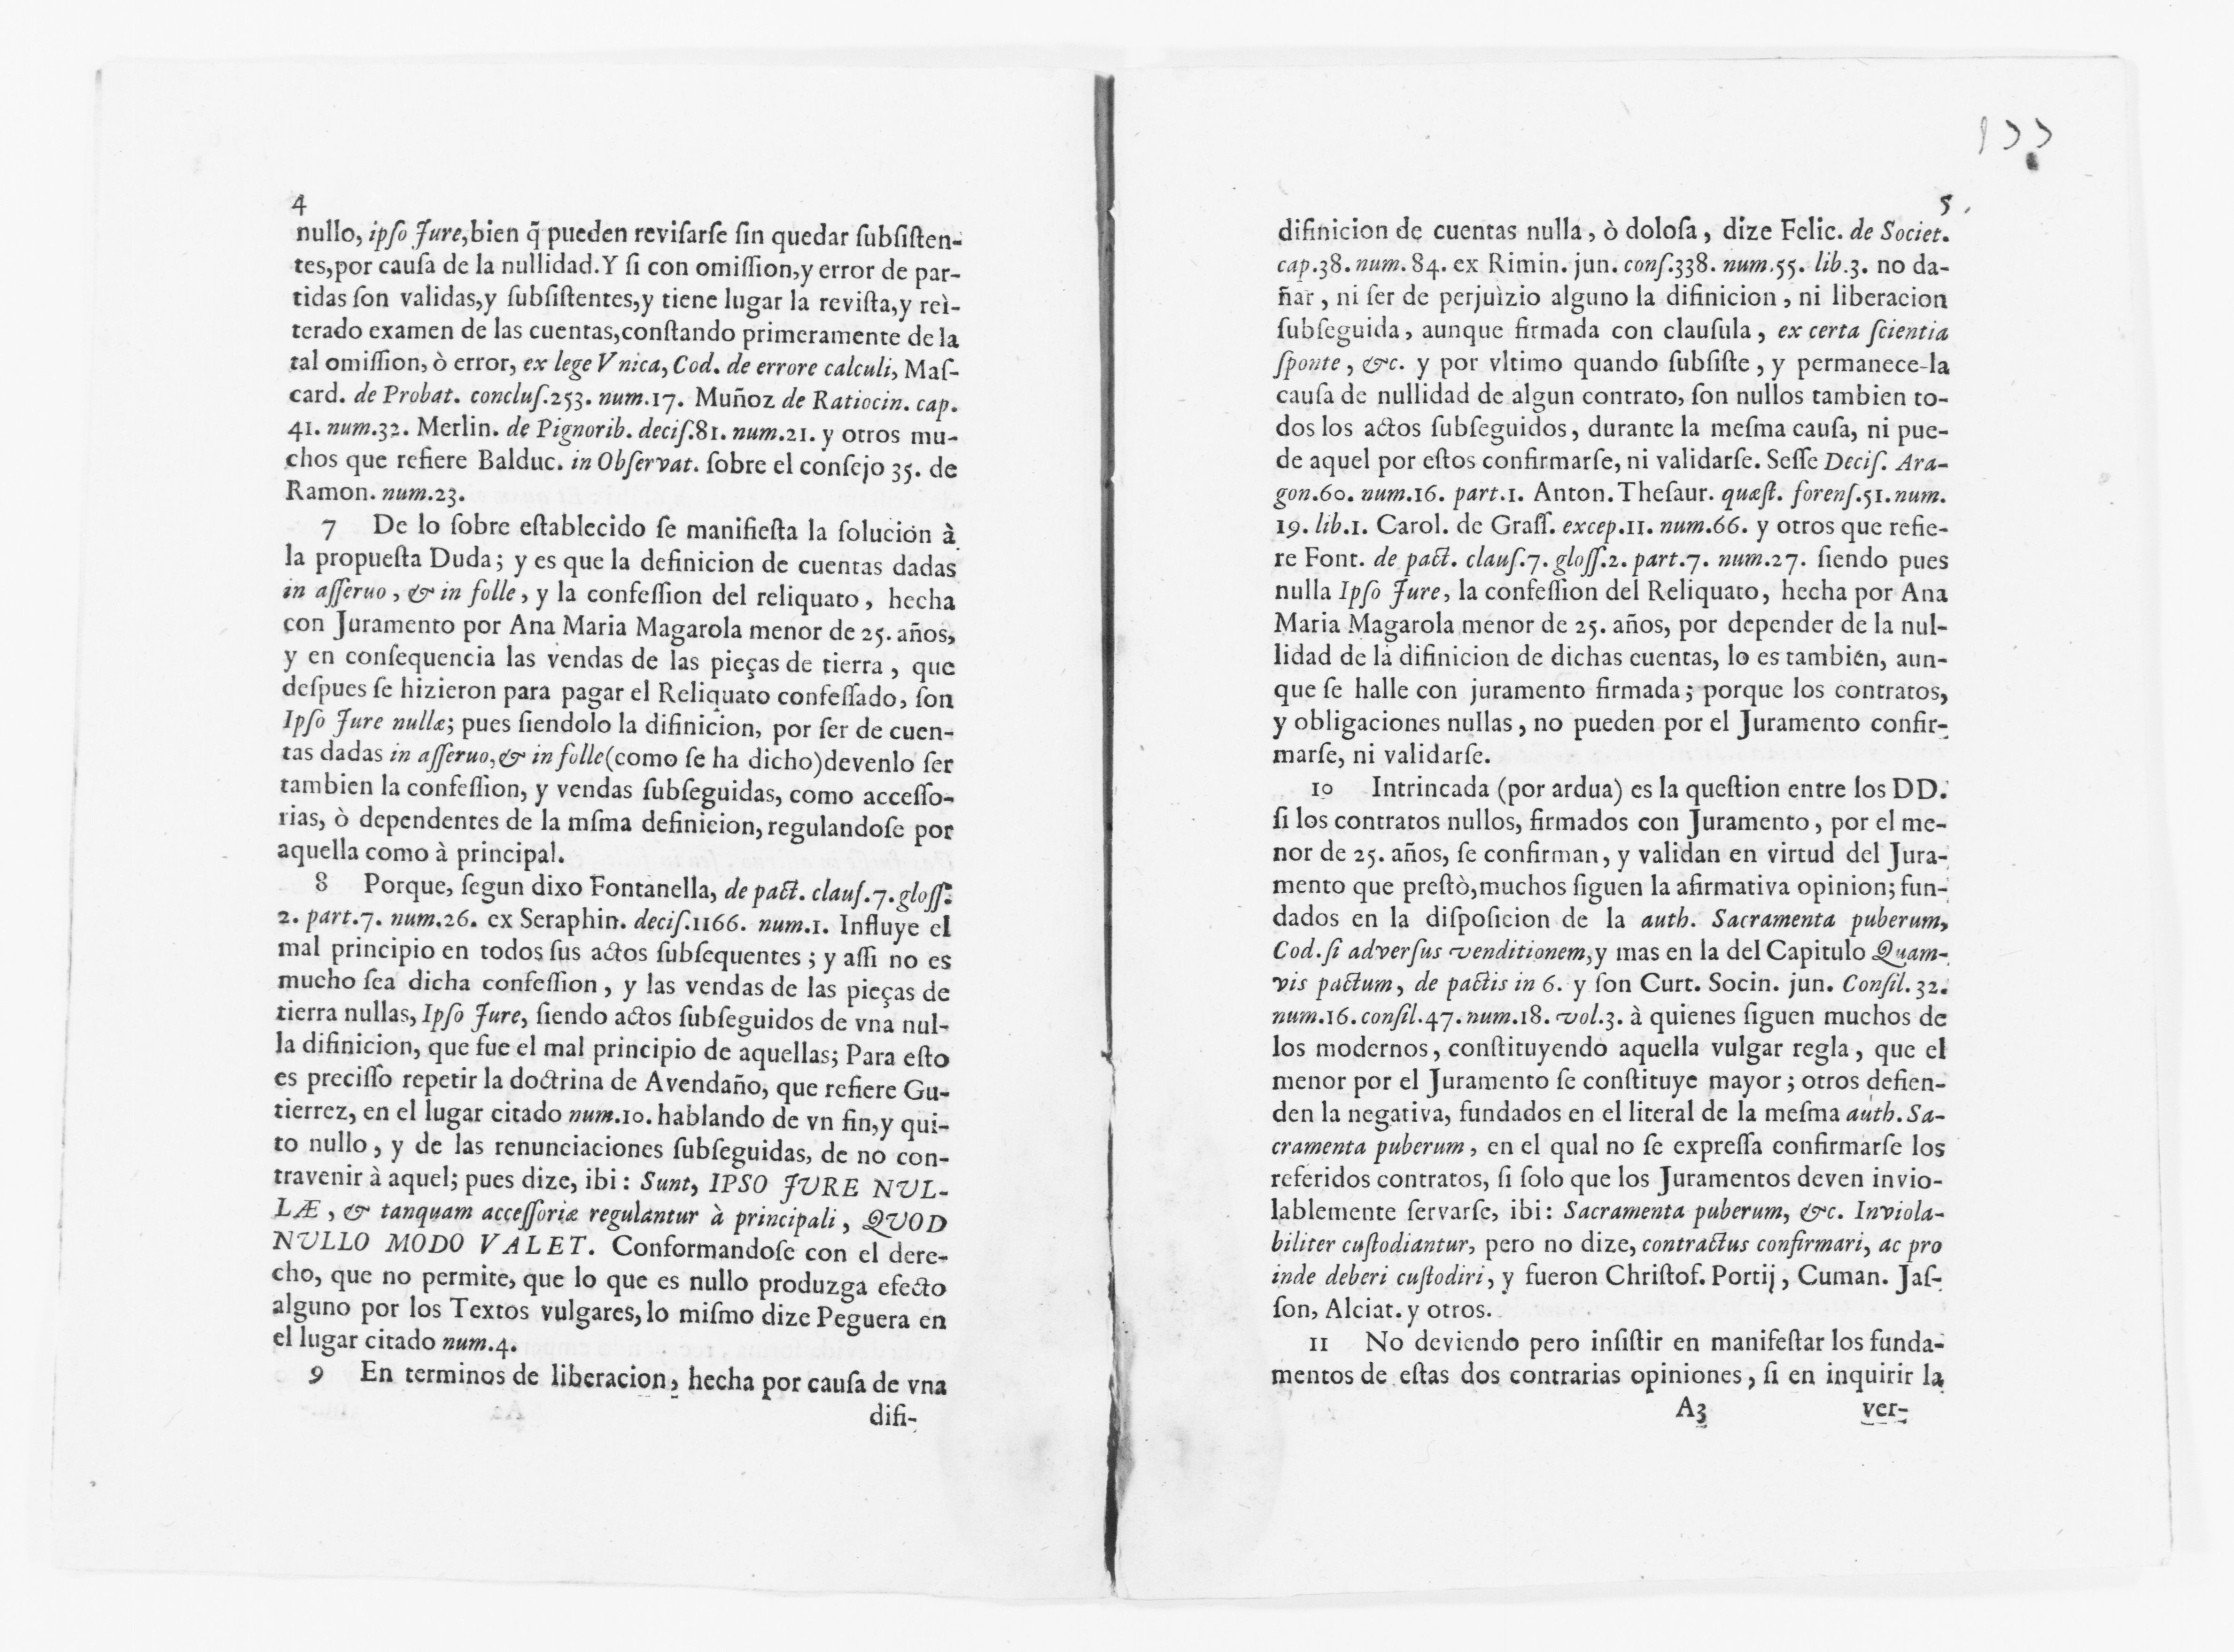 4
nullo, ipſo Jure,bien q̃ pueden reviſarſe ſin quedar ſubſiſten-
tes,por cauſa de la nullidad.Y ſi con omiſſion,y error de par-
tidas ſon validas,y ſubſiſtentes,y tiene lugar la reviſta,y reì-
terado examen de las cuentas,conſtando primeramente de la
tal omiſſion, ò error, ex lege Vnica, Cod. de errore calculi, Maſ-
card. de Probat. concluſ.253. num.17. Muñoz de Ratiocin. cap.
41. num.32. Merlin. de Pignorib. deciſ.81. num.21. y otros mu-
chos que refiere Balduc. in Obſervat. ſobre el conſejo 35. de
Ramon. num.23.
7 De lo ſobre eſtablecido ſe manifieſta la ſolucion à
la propueſta Duda; y es que la definicion de cuentas dadas
in aſſeruo, & in folle, y la confeſſion del reliquato, hecha
con Juramento por Ana Maria Magarola menor de 25. años,
y en conſequencia las vendas de las pieças de tierra, que
deſpues ſe hizieron para pagar el Reliquato confeſſado, ſon
Ipſo Jure nullæ; pues ſiendolo la difinicion, por ſer de cuen-
tas dadas in aſſeruo,& in folle(como ſe ha dicho)devenlo ſer
tambien la confeſſion, y vendas ſubſeguidas, como acceſſo-
rias, ò dependentes de la mſma definicion, regulandoſe por
aquella como à principal.
8 Porque, ſegun dixo Fontanella, de pact. clauſ.7.gloſſ.
2. part.7. num.26. ex Seraphin. deciſ.1166. num.1. Influye el
mal principio en todos ſus actos ſubſequentes; y aſſi no es
mucho ſea dicha confeſſion, y las vendas de las pieças de
tierra nullas, Ipſo Jure, ſiendo actos ſubſeguidos de vna nul-
la difinicion, que fue el mal principio de aquellas; Para eſto
es preciſſo repetir la doctrina de Avendaño, que refiere Gu-
tierrez, en el lugar citado num.10. hablando de vn fin,y qui-
to nullo, y de las renunciaciones ſubſeguidas, de no con-
travenir à aquel; pues dize, ibi: Sunt, IPSO JURE NUL-
LÆ, & tanquam acceſſoriæ regulantur à principali, QUOD
NULLO MODO VALET. Conformandoſe con el dere-
cho, que no permite, que lo que es nullo produzga efecto
alguno por los Textos vulgares, lo miſmo dize Peguera en
el lugar citado num.4.
9 En terminos de liberacion, hecha por cauſa de vna
difi-
5
difinicion de cuentas nulla, ò doloſa, dize Felic. de Societ.
cap.38. num.84. ex Rimin. jun. conſ.338. num.55. lib.3. no da-
ñar, ni ſer de perjuizio alguno la difinicion, ni liberacion
ſubſeguida, aunque firmada con clauſula, ex certa ſcientia
ſponte, &c. y por vltimo quando ſubſiſte, y permanece-la
cauſa de nullidad de algun contrato, ſon nullos tambien to-
dos los actos ſubſeguidos, durante la meſma cauſa, ni pue-
de aquel por eſtos confirmarſe, ni validarſe. Seſſe Deciſ. Ara-
gon.60. num.16. part.1. Anton. Theſaur. quæſt. forenſ.51.num.
19. lib.1. Carol. de Graſſ. excep.11. num.66. y otros que refie-
re Font. de pact. clauſ.7. gloſſ.2. part.7. num.27. ſiendo pues
nulla Ipſo Jure, la confeſſion del Reliquato, hecha por Ana
Maria Magarola menor de 25. años, por depender de la nul-
lidad de la difinicion de dichas cuentas, lo es tambien, aun-
que ſe halle con juramento firmada; porque los contratos,
y obligaciones nullas, no pueden por el Juramento confir-
marſe, ni validarſe.
10 Intrincada (por ardua) es la queſtion entre los DD.
ſi los contratos nullos, firmados con Juramento, por el me-
nor de 25. años, ſe confirman, y validan en virtud del Jura-
mento que preſtò,muchos ſiguen la afirmativa opinion; fun-
dados en la diſpoſicion de la auth. Sacramenta puberum,
Cod. ſi adverſus venditionem,y mas en la del Capitulo Quam-
vis pactum, de pactis in 6. y ſon Curt. Socin. jun. Conſil. 32.
num.16. conſil.47. num.18. vol.3. à quienes ſiguen muchos de
los modernos, conſtituyendo aquella vulgar regla, que el
menor por el Juramento ſe conſtituye mayor; otros defien-
den la negativa, fundados en el literal de la meſma auth. Sa-
cramenta puberum, en el qual no ſe expreſſa confirmarſe los
referidos contratos, ſi ſolo que los Juramentos deven invio-
lablemente ſervarſe, ibi: Sacramenta puberum, &c. Inviola-
biliter cuſtodiantur, pero no dize, contractus confirmari, ac pro
inde deberi cuſtodiri, y fueron Chriſtof. Portij, Cuman. Jaſ-
ſon, Alciat. y otros.
11 No deviendo pero inſiſtir en manifeſtar los funda-
mentos de eſtas dos contrarias opiniones, ſi en inquirir la
A3 ver-